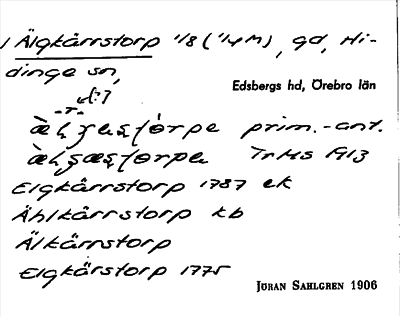 Älgkärrstorp 1/8 (1/4 M), gd, Hi-
dinge sn,
Edsbergs hd, Örebro län
prim.-ant.
TrHs 1913
Elgkärrstorp 1787 ek
Ählkärrstorp kb
Älkärrstorp
Elgkärstorp 1775
JÖRAN SAHLGREN 1906